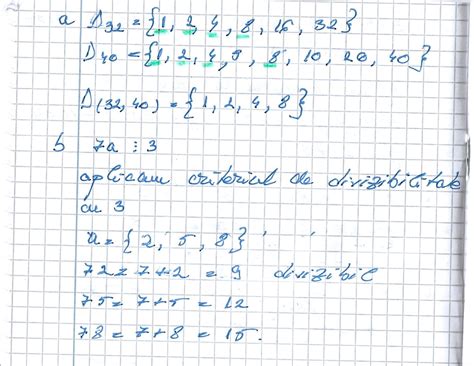 a D32 = {1, 2, 4, 8, 16, 32}
D40 = {1, 2, 4, 5, 8, 10, 20, 40}
D(32,40) = {1, 2, 4, 8}
b 7a ⋮ 3
aplicam criteriul de divizibilitate
cu 3
a = {2, 5, 8}
72 = 7+2 = 9 divizibil
75 = 7+5 = 12
78 = 7+8 = 15.